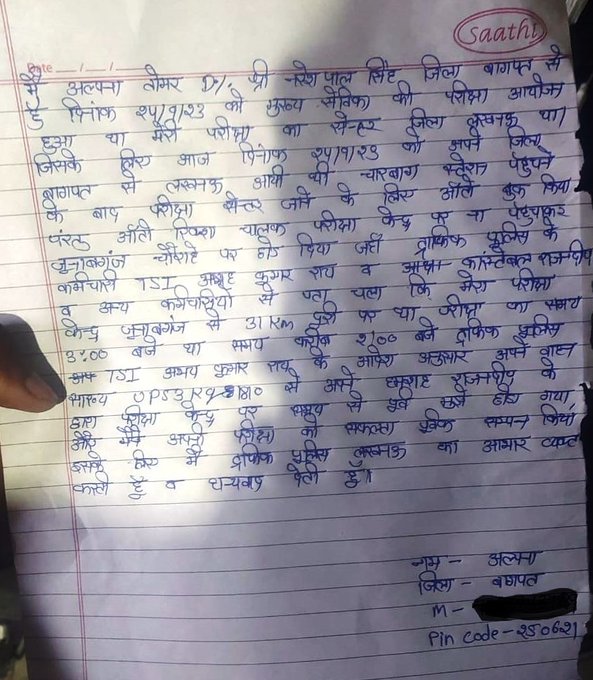 Saathi
Date __/__/__
मैं अल्पना तोमर D/o श्री नरेश पाल सिंह जिला बागपत से
हूँ दिनांक २५/९/२३ को मुख्य सेविका की परीक्षा आयोजन
हुआ था मेरी परीक्षा का सेन्टर जिला लखनऊ था।
जिसके लिए आज दिनांक २५/९/२३ को अपने जिला
बागपत से लखनऊ आयी थी चारबाग स्टेशन पहुंचने
के बाद परीक्षा सेन्टर जाने के लिए ऑटो बुक किया
परंतु ऑटो रिक्शा चालक परीक्षा केन्द्र पर ना पहुंचाकर
जुनाबगंज चौराहे पर छोड दिया जहाँ ट्राफिक पुलिस के
कर्मचारी TSI कुमार राय व कांस्टेबल राजदीप
व अन्य कर्मचारियों से पता चला कि मेरा परीक्षा
केन्द्र जुनाबगंज से 31 Km दूरी पर था परीक्षा का समय
3%00 बजे था समय करीब २%00 बजे ट्राफिक पुलिस
TSI अभय कुमार राय के आदेश अनुसार अपने वाहन
UP53 से अपने हमराह राजदीप के
द्वारा परीक्षा केन्द्र पर समय से पूर्व छोड गया
और मैंने अपनी परीक्षा को सफलता पूर्वक सम्पन्न किया
इसके लिए मैं ट्राफिक पुलिस लखनऊ का आभार व्यक्त
करती हूँ व धन्यवाद देती हूँ।
नाम - अल्पना
जिला - बागपत
M -
Pin code - 250621